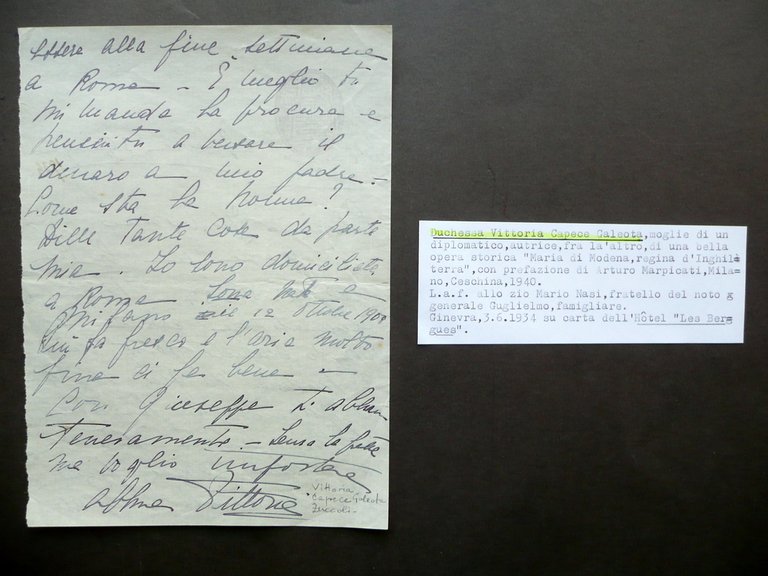 essere alla fine settimana
a Roma – E meglio tu
mi manda la procura e
a versare il
denaro a mio padre –
Come sta la Nonna?
Dille tante cose da parte
mia. Io sono domiciliata
a Roma
12 Ottobre
fa fresco e l'aria molto
fine ci fa bene –
Con Giuseppe ti abbra
teneramente. – Scusa la fretta
ma voglio impostare
Vittoria
Vittoria
Capece Galeota
Zuccoli -
Duchessa Vittoria Capece Galeota,moglie di un
diplomatico,autrice,fra la'altro,di una bella
opera storica "Maria di Modena,regina d'Inghil=
terra",con prefazione di Arturo Marpicati,Mila=
no,Ceschina,1940.
L.a.f. allo zio Mario Nasi,fratello del noto g
generale Guglielmo,famigliare.
Ginevra,3.6.1934 su carta dell'Hôtel "Les Ber=
gues".